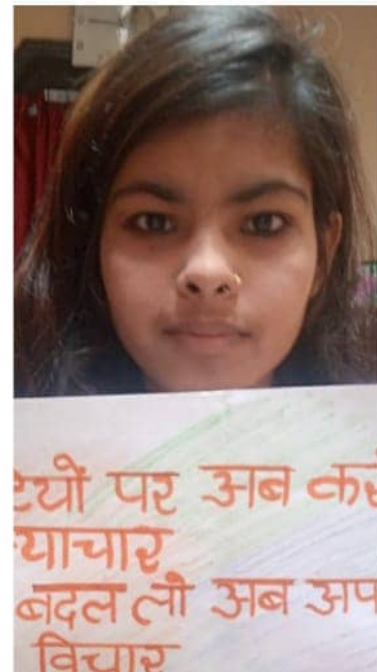 टियों पर अब करो
याचार
बदल लो अब अप
विचार